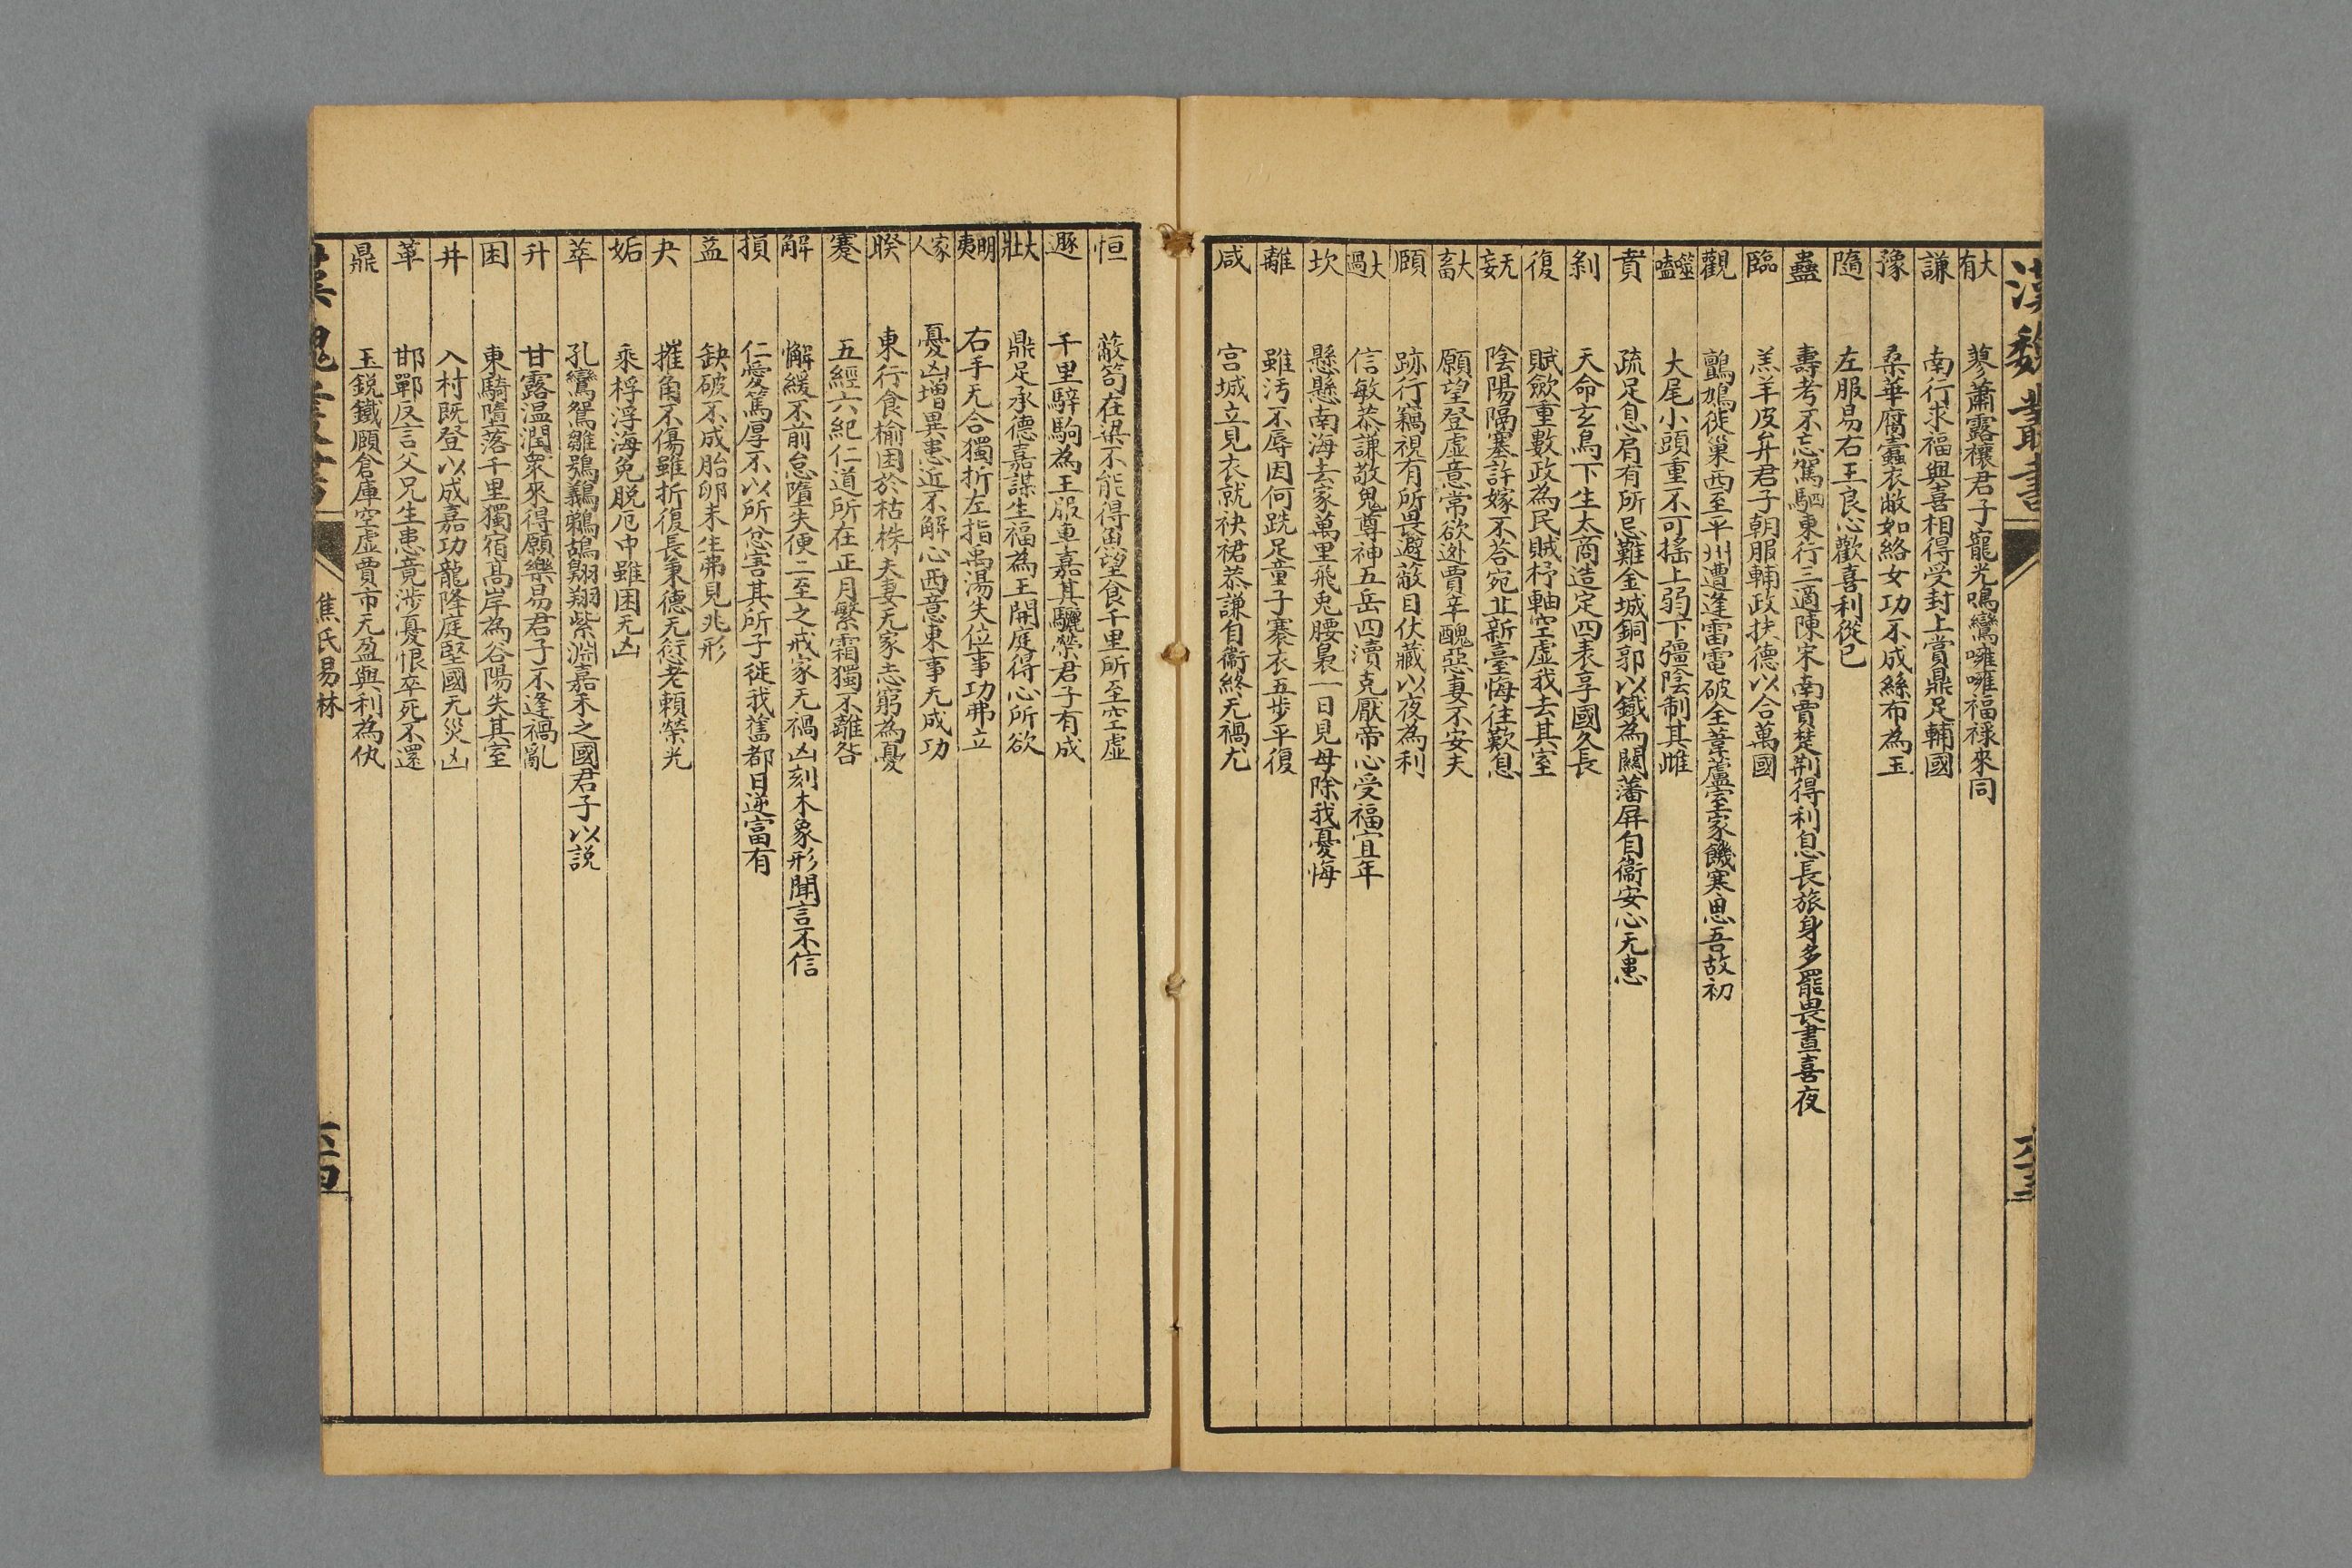 漢魏叢書
大有 蓼蕭露穰君子龍光鳴鸞噰噰福祿來同
謙 南行求福與喜相得受封上賞鼎足輔國
豫 桑華腐蠹衣敝如絡女功不成絲布為玉
隨 左服易右王良心歡喜利從己
蠱 壽考不忘駕駟東行三適陳宋南賈楚荆得利息長旅身多罷畏晝喜夜
臨 羔羊皮弁君子朝服輔政扶德以合萬國
觀 鸇鳩徙巢西至平州遭逢雷電破全葦蘆室家饑寒思吾故初
噬嗑 大尾小頭重不可搖上弱下彊陰制其雌
賁 疏足息肩有所忌難金城銅郭以鐵為關藩屏自衞安心无患
剝 天命玄鳥下生太商造定四表享國久長
復 賦斂重數政為民賊杼軸空虛我去其室
无妄 陰陽隔塞許嫁不荅宛丘新臺悔往歎息
大畜 願望登虛意常欲逊賈辛醜惡妻不安夫
頤 跡行竊視有所畏避蔽目伏藏以夜為利
大過 信敏恭謙敬鬼尊神五岳四瀆克厭帝心受福宜年
坎 懸懸南海去家萬里飛兔腰裊一日見母除我憂悔
離 雖汚不辱因何跣足童子褰衣五步平復
咸 宮城立見衣就袂裙恭謙自衞終无禍尤
恒 蔽笱在梁不能得魚望食千里所至空虛
遯 千里騂駒為王服車嘉其驪榮君子有成
大壯 鼎足承德嘉謀生福為王開庭得心所欲
明夷 右手无合獨折左指禹湯失位事功弗立
家人 憂凶增異患近不解心西意東事无成功
睽 東行食榆困於枯株夫妻无家志窮為憂
蹇 五經六紀仁道所在正月繁霜獨不離咎
解 懈緩不前怠隋失便二至之戒家无禍凶刻木象形聞言不信
損 仁愛篤厚不以所忿害其所子從我舊都日逆富有
益 缺破不成胎卵未生弗見兆形
夬 摧角不傷雖折復長秉德无愆老賴榮光
姤 乘桴浮海免脫厄中雖困无凶
萃 孔鸞鴛雛鵷鶵鵜鶘翱翔紫淵嘉禾之國君子以說
升 甘露温潤衆來得願樂易君子不逢禍亂
困 東騎墮落千里獨宿高岸為谷陽失其室
井 入村既登以成嘉功龍降庭堅國无災凶
革 邯鄲反言父兄生患竟涉憂恨卒死不還
鼎 玉銳鐵頤倉庫空虛賈市无盈與利為仇
焦氏易林